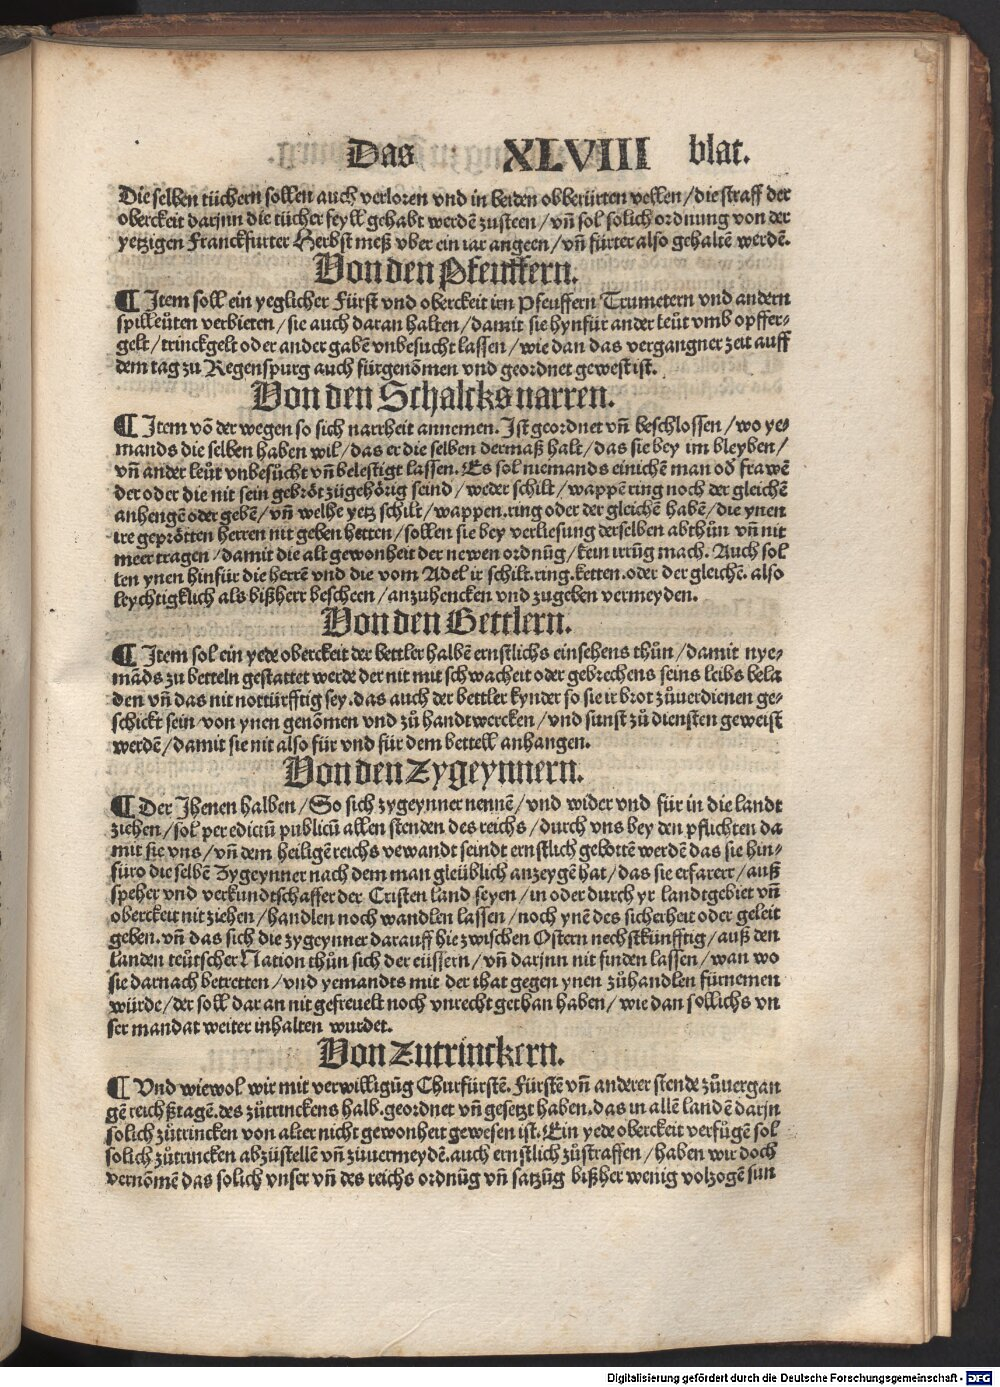 Das XLVIII blat.
Die selben tüchern sollen auch verloren vnd in beiden obberürten vellen / die straff der
oberckeit darjnn die tücher feyll gehabt werdē zusteen / vñ sol solich ordnung von der
yetzigen Franckfurter Herbst meß vber ein iar angeen / vñ fürter also gehaltē werdē.
Von den Pfeuffern.
¶ Item soll ein yeglicher Fürst vnd oberckeit irn Pfeuffern Trumetern vnd andern
spilleüten verbieten / sie auch daran halten / damit sie hynfür ander leüt vmb opffer-
gelt / trinckgelt oder ander gabē vnbesucht lassen / wie dan das vergangner zeit auff
dem tag zu Regenspurg auch fürgenōmen vnd geordnet gewest ist.
Von den Schalcks narren.
¶ Item vō der wegen so sich narrheit annemen. Ist geordnet vñ beschlossen / wo ye-
mands die selben haben wil / das er die selben dermaß halt / das sie bey im bleyben /
vñ ander leůt vnbesůcht vñ belestigt lassen. Es sol niemands einichē man od̛ frawē
der oder die nit sein gebrőt zůgehőrig seind / weder schilt / wappē ring noch der gleichē
anhengē oder gebē / vñ welhe yetz schilt / wappen.ring oder der gleichē habē / die ynen
ire geprőtten herren nit geben hetten / sollen sie bey verliesung derselben abthůn vñ nit
meer tragen / damit die alt gewonheit der newen ordnūg / kein irrūg mach. Auch sol
len ynen hinfür die herrē vnd die vom Adel ir schilt.ring.ketten.oder der gleichē. also
leychtigklich als bißherr bescheen / anzuhencken vnd zugeben vermeyden.
Von den Bettlern.
¶ Item sol ein yede oberckeit der bettler halbē ernstlichs einsehens thůn / damit nye-
māds zu betteln gestattet werde der nit mit schwacheit oder gebrechens seins leibs bela
den vñ das nit nottürfftig sey.das auch der bettler kynder so sie ir brot zůuerdienen ge-
schickt sein / von ynen genōmen vnd zů handtwercken / vnd sunst zů diensten geweist
werdē / damit sie nit also für vnd für dem bettell anhangen.
Von den Zygeynnern.
¶ Der Jhenen halben / So sich zygeynner nennē / vnd wider vnd für in die landt
ziehen / sol per edictū publicū allen stenden des reichs / durch vns bey den pflichten da
mit sie vns / vñ dem heiligē reichs vewandt seindt ernstlich gebottē werdē das sie hin-
füro die selbē Zygeynner nach dem man gleüblich anzeygē hat / das sie erfarerr / auß
speher vnd verkundtschaffer der Cristen land seyen / in oder durch yr landtgebiet vñ
oberckeit nit ziehen / handlen noch wandlen lassen / noch ynē des sicherheit oder geleit
geben.vñ das sich die zygeynner darauff hie zwischen Ostern nechstkünfftig / auß den
landen teůtscher Nation thůn sich der eüssern / vñ darjnn nit finden lassen / wan wo
sie darnach betretten / vnd yemandts mit der that gegen ynen zůhandlen fürnemen
würde / der soll dar an nit gefreuelt noch vnrecht gethan haben / wie dan sollichs vn
ser mandat weiter inhalten wurdet.
Von Zutrinckern.
¶ Vnd wiewol wir mit verwilligūg Churfürstē. Fürstē vñ anderer stende zůuergan
gē reichßtagē.des zůtrinckens halb.geordnet vñ gesetzt haben.das in allē landē darjn
solich zůtrincken von alter nicht gewonheit gewesen ist. Ein yede oberckeit verfůgē sol
solich zůtrincken abzůstellē vñ zůuermeydē.auch ernstlich zůstraffen / haben wir doch
vernōmē das solich vnser vñ des reichs ordnūg vñ satzūg bißher wenig volzogē sun
Digitalisierung gefördert durch die Deutsche Forschungsgemeinschaft - DFG